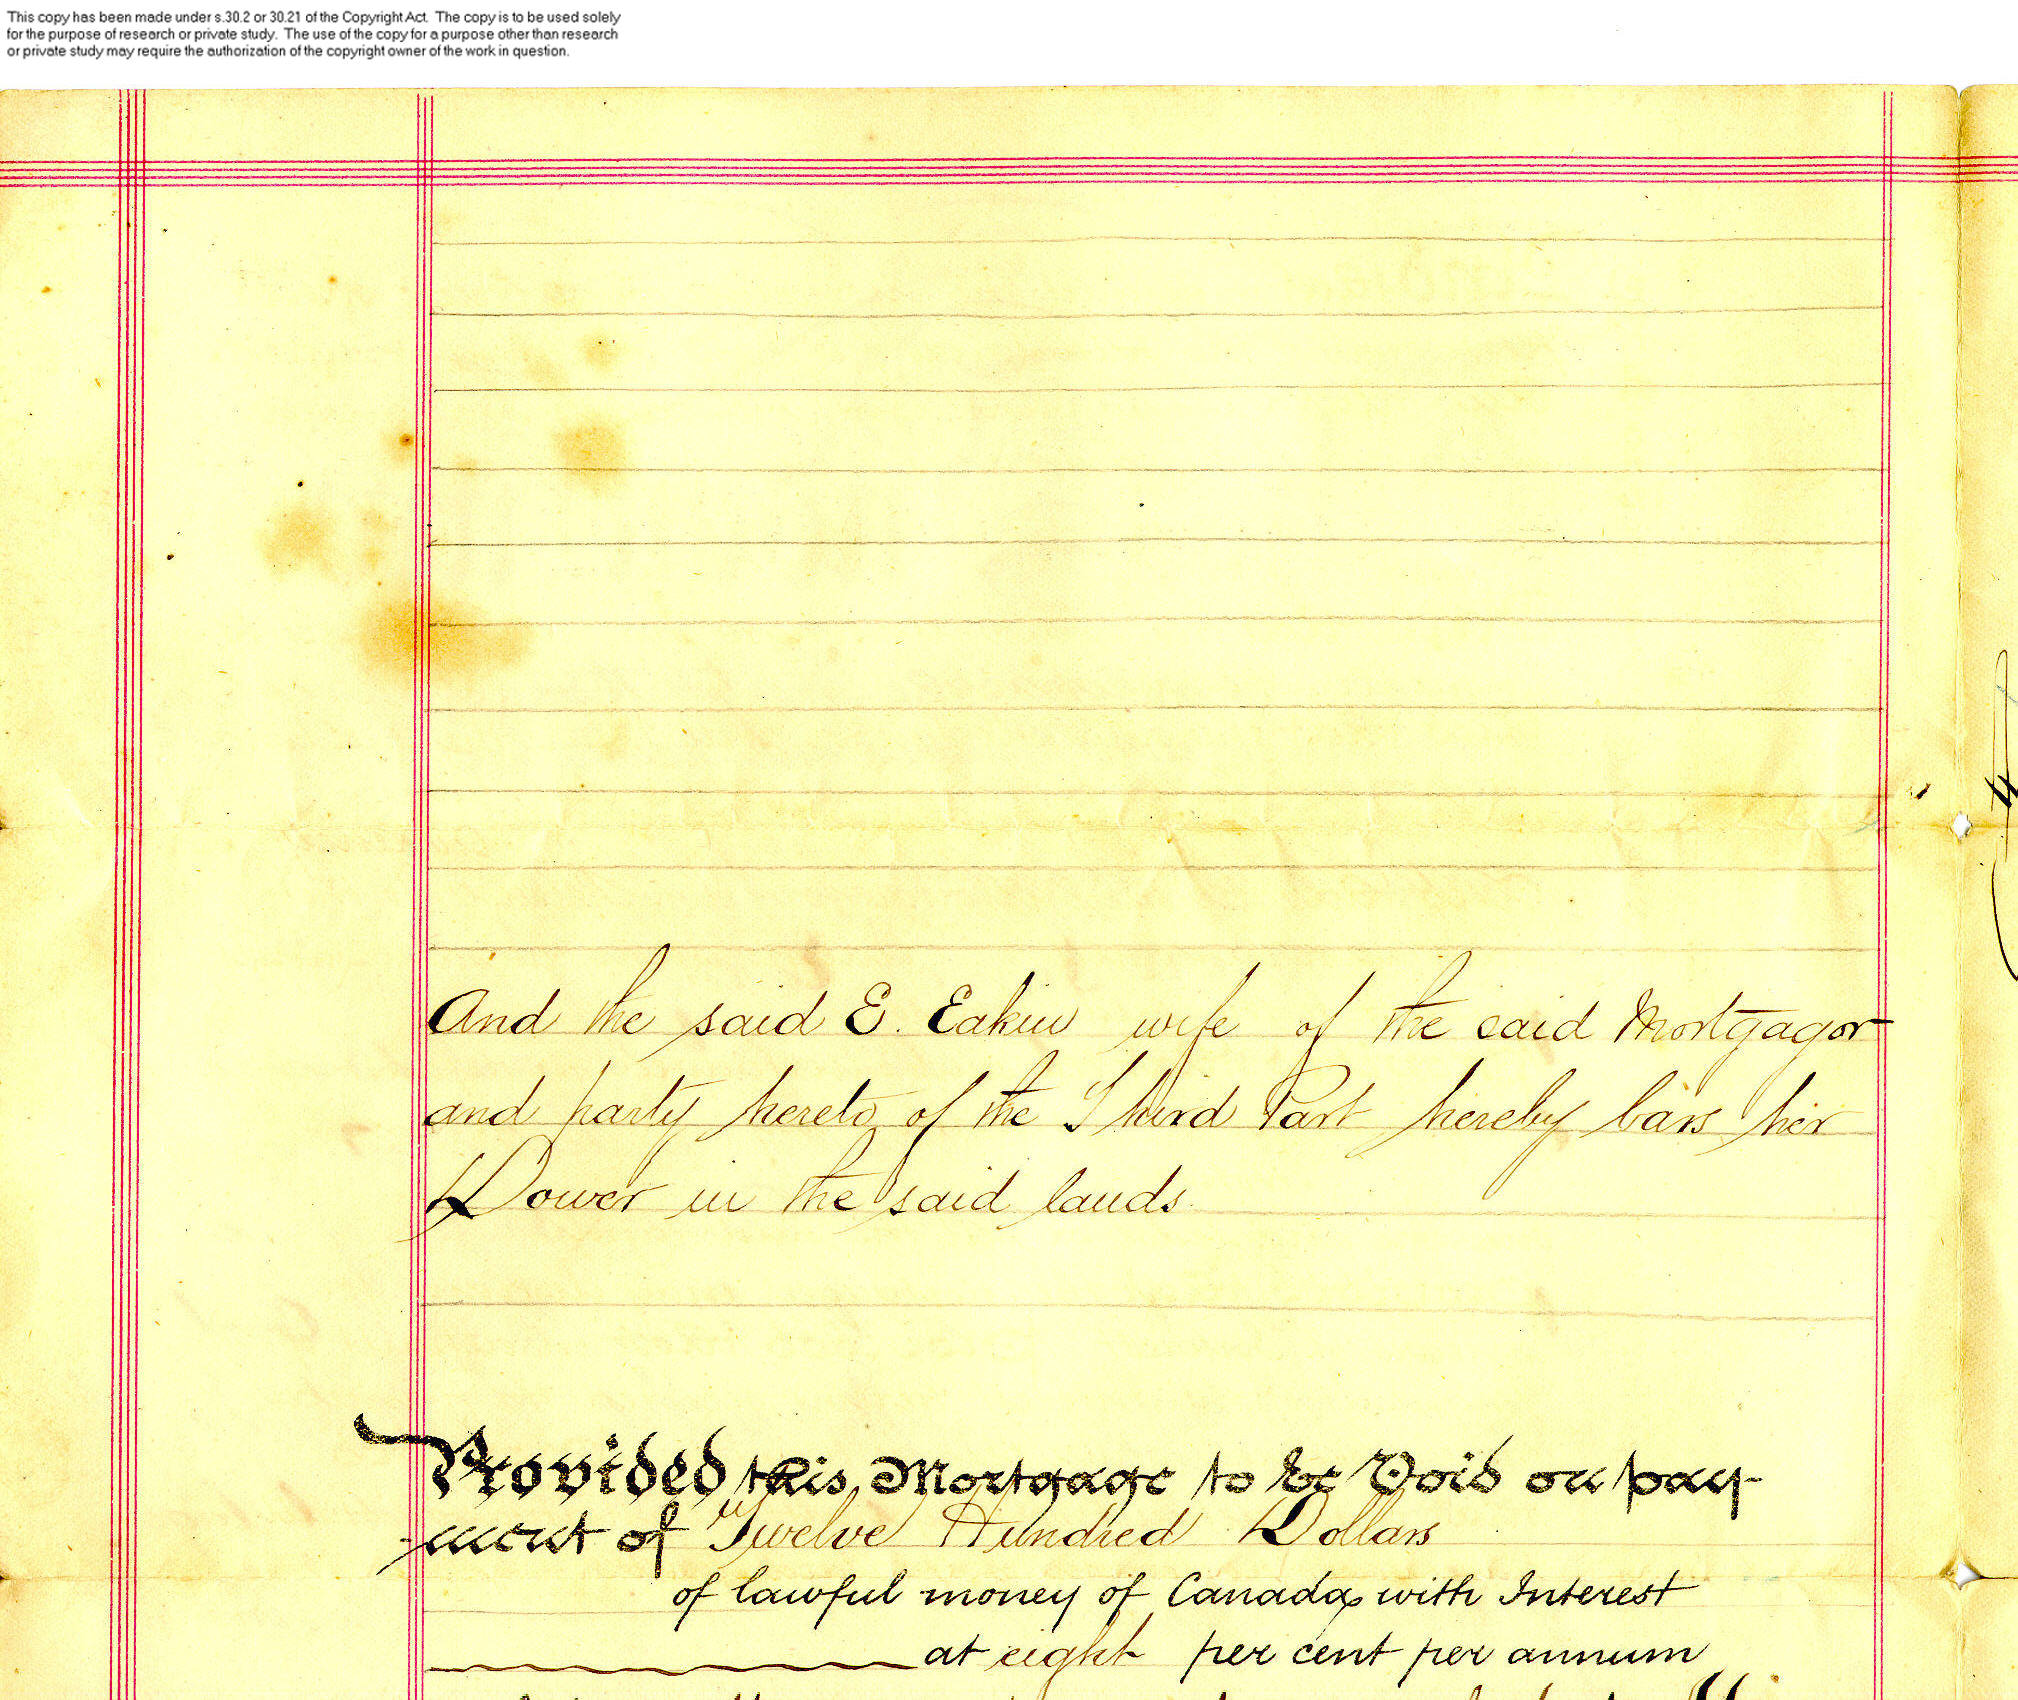 This copy has been made under s.30.2 or 30.21 of the Copyright Act. The copy is to be used solely
for the purpose of research or private study. The use of the copy for a purpose other than research
or private study may require the authorization of the copyright owner of the work in question.
And the said E. Eakin wife of the said Mortgagor
and party hereto of the Third Part hereby bars her
Dower in the said lands.
Provided this Mortgage to be Void on pay-
ment of Twelve Hundred Dollars
of lawful money of Canada, with Interest
at eight per cent per annum